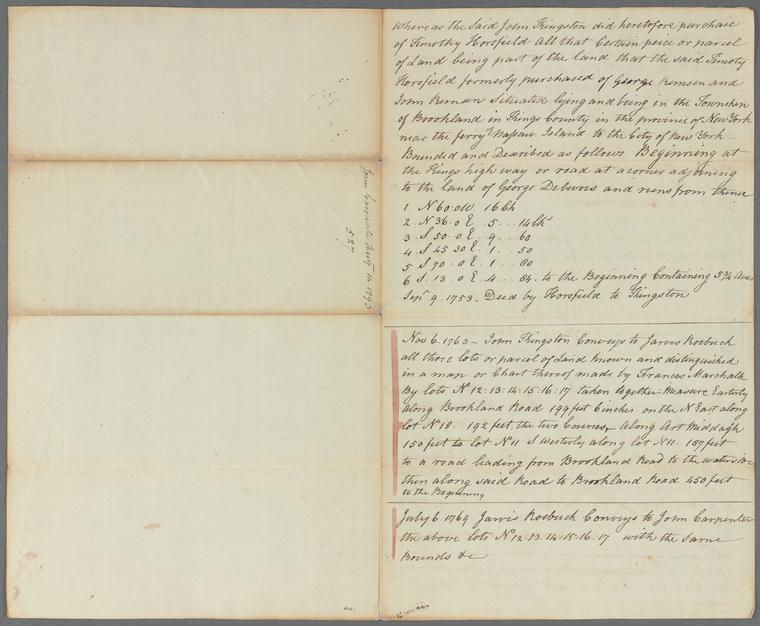 Whereas the Said John Thingston did heretofore purchase
of Timothy Horsfield all that Certain peice or parcel
of Land being part of the land that the said Timoty
Horsfield formerly purchased of George Remsen and
John Remsen Situated lying and being in the Township
of Brookland in Kings County in the province of New York
near the ferry Nassau Island to the City of New York
Bounded and Described as follows Beginning at
the Kings high way or road at a corner adjoining
to the land of George Debevois and runs from thence
1 N 60.0 W. 16 Ch
2 N 36.0 E. 5...14 lks
3 S 50.0 E. 9...60
4 S 45 30 E. 1..50
5 S 70.0 E. 1...80
6 S. 13.0 E. 4...84. to the Beginning Containing 5 3/4 Acres
9. 1753 - Deed by Horsfield to Thingston
Nov 6. 1763 - John Thingston Conveys to Jarvis Roebuck
all those lots or parcel of Land known and distinguished
in a map or Chart thereof made by Frances Marchalk
By lots No 12:13:14:15:16:17 taken together measure Easterly
along Brookland Road 199 feet 6 inches on the N East along
lot No 18. 192 feet the two Courses along Art Middagh
150 feet to lot No 11 S Westerly along lot No 11. 187 feet
to a road leading from Brookland Road to the waterside
then along said Road to Brookland Road 450 feet
to the Beginning
July 6 1769 Jarvis Roebuck Conveys to John Carpenter
the above lots No 12.13.14.15.16.17 with the Same
Bounds &c
Augt 14 1793
527